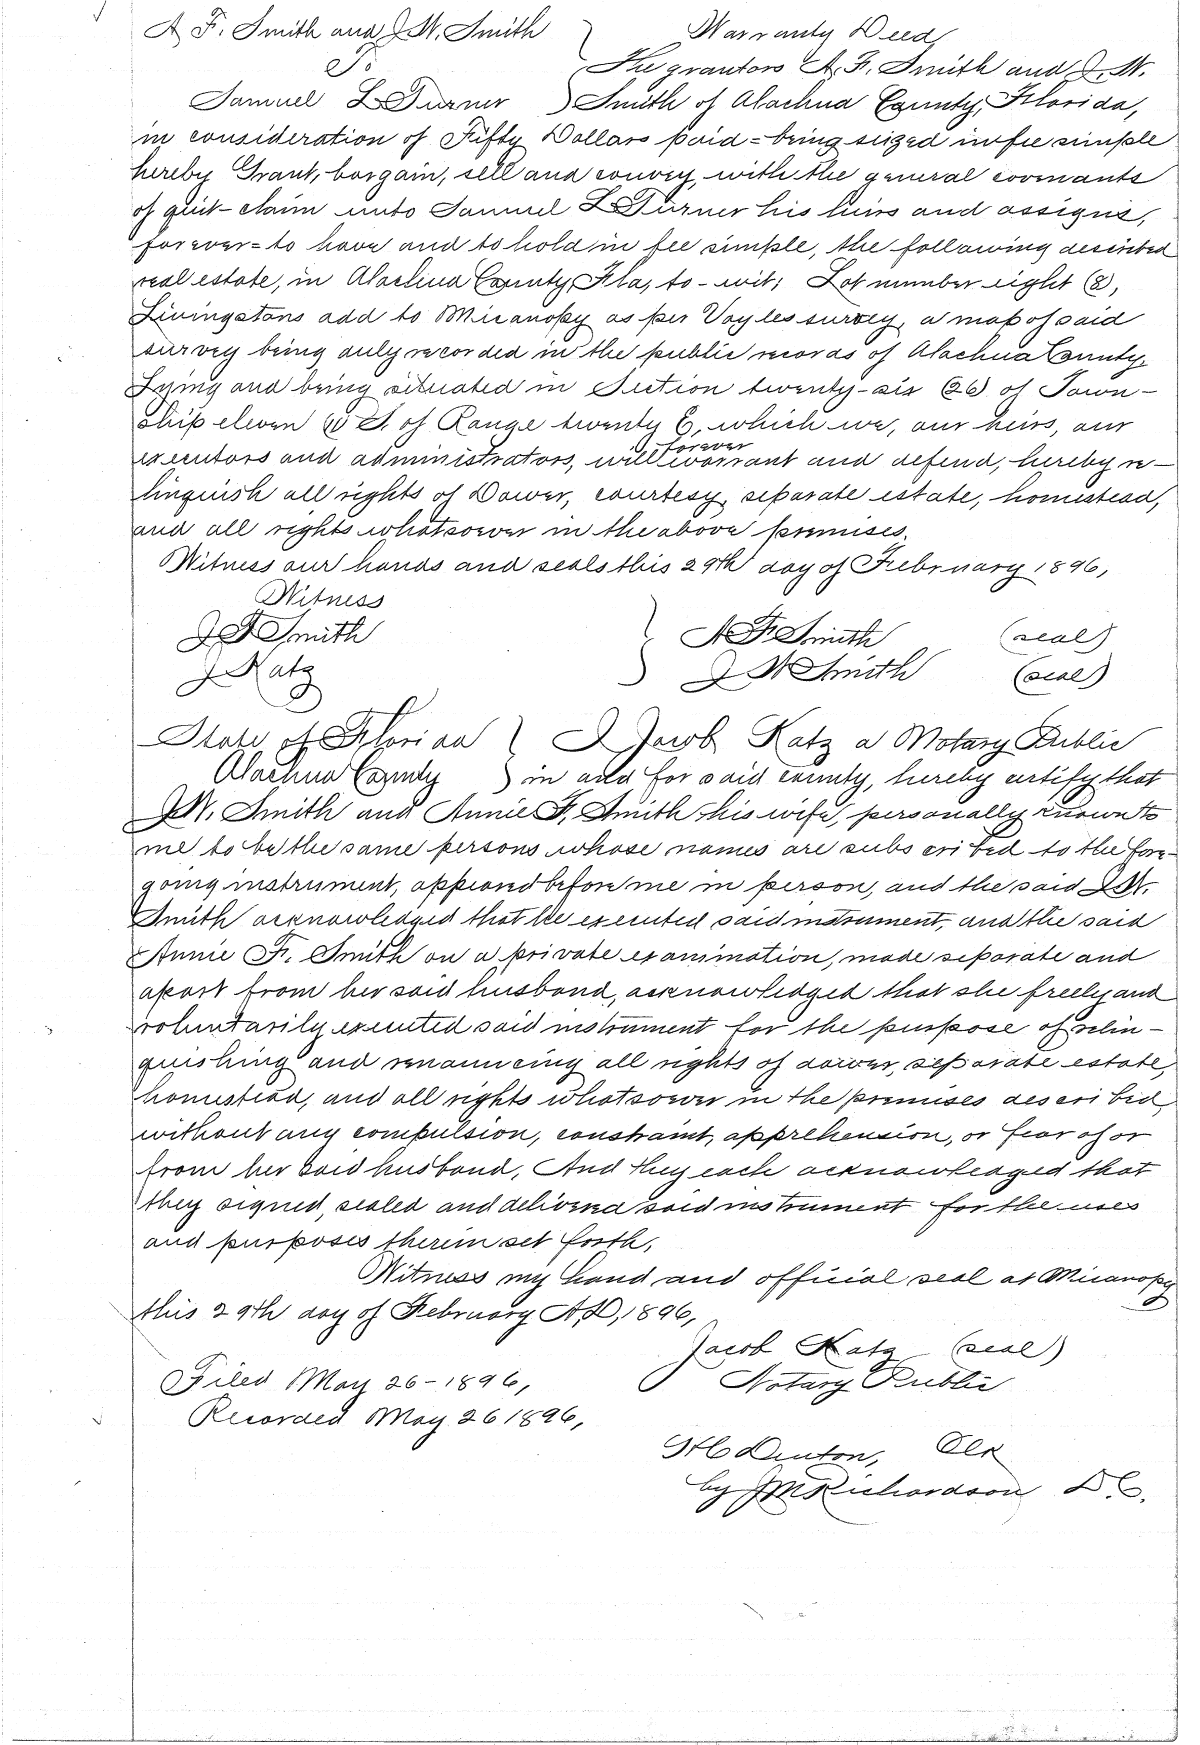 A F. Smith and J W. Smith } Warranty Deed
To } The grantors A. F. Smith and J. W.
Samuel L Turner } Smith of Alachua County, Florida,
in consideration of Fifty Dollars paid = being seized in fee simple
hereby Grant, bargain, sell and convey, with the general covenants
of quit-claim unto Samuel L Turner his heirs and assigns,
forever = to have and to hold in fee simple, the following described
real estate, in Alachua County Fla, to-wit; Lot number eight (8),
Livingstons add to Micanopy as per Voyles survey, a map of said
survey being duly recorded in the public records of Alachua County.
Lying and being situated in Section twenty-six (26) of Town-
ship eleven (11) S. of Range twenty E, which we, our heirs, our
executors and administrators, will forever warrant and defend, hereby re-
linquish all rights of Dower, courtesy, separate estate, homestead,
and all rights whatsoever in the above premises.
Witness our hands and seals this 29th day of February 1896,
Witness
J F Smith } A F Smith (seal)
J Katz } J W Smith (seal)
State of Florida } I Jacob Katz a Notary Public
Alachua County } in and for said county, hereby certify that
J W. Smith and Annie F. Smith his wife, personally known to
me to be the same persons whose names are subscribed to the fore-
going instrument, appeared before me in person, and the said J W.
Smith acknowledged that he executed said instrument, and the said
Annie F. Smith on a private examination, made separate and
apart from her said husband, acknowledged that she freely and
voluntarily executed said instrument for the purpose of relin-
quishing and renouncing all rights of dower, separate estate,
homestead, and all rights whatsoever in the premises described,
without any compulsion, constraint, apprehension, or fear of or
from her said husband, And they each acknowledged that
they signed, sealed and delivered said instrument for the uses
and purposes therein set forth,
Witness my hand and official seal at Micanopy
this 29th day of February A,D, 1896,
Jacob Katz (seal)
Filed May 26-1896, Notary Public
Recorded May 26 1896,
Denton, Clk
by J M Richardson D C.